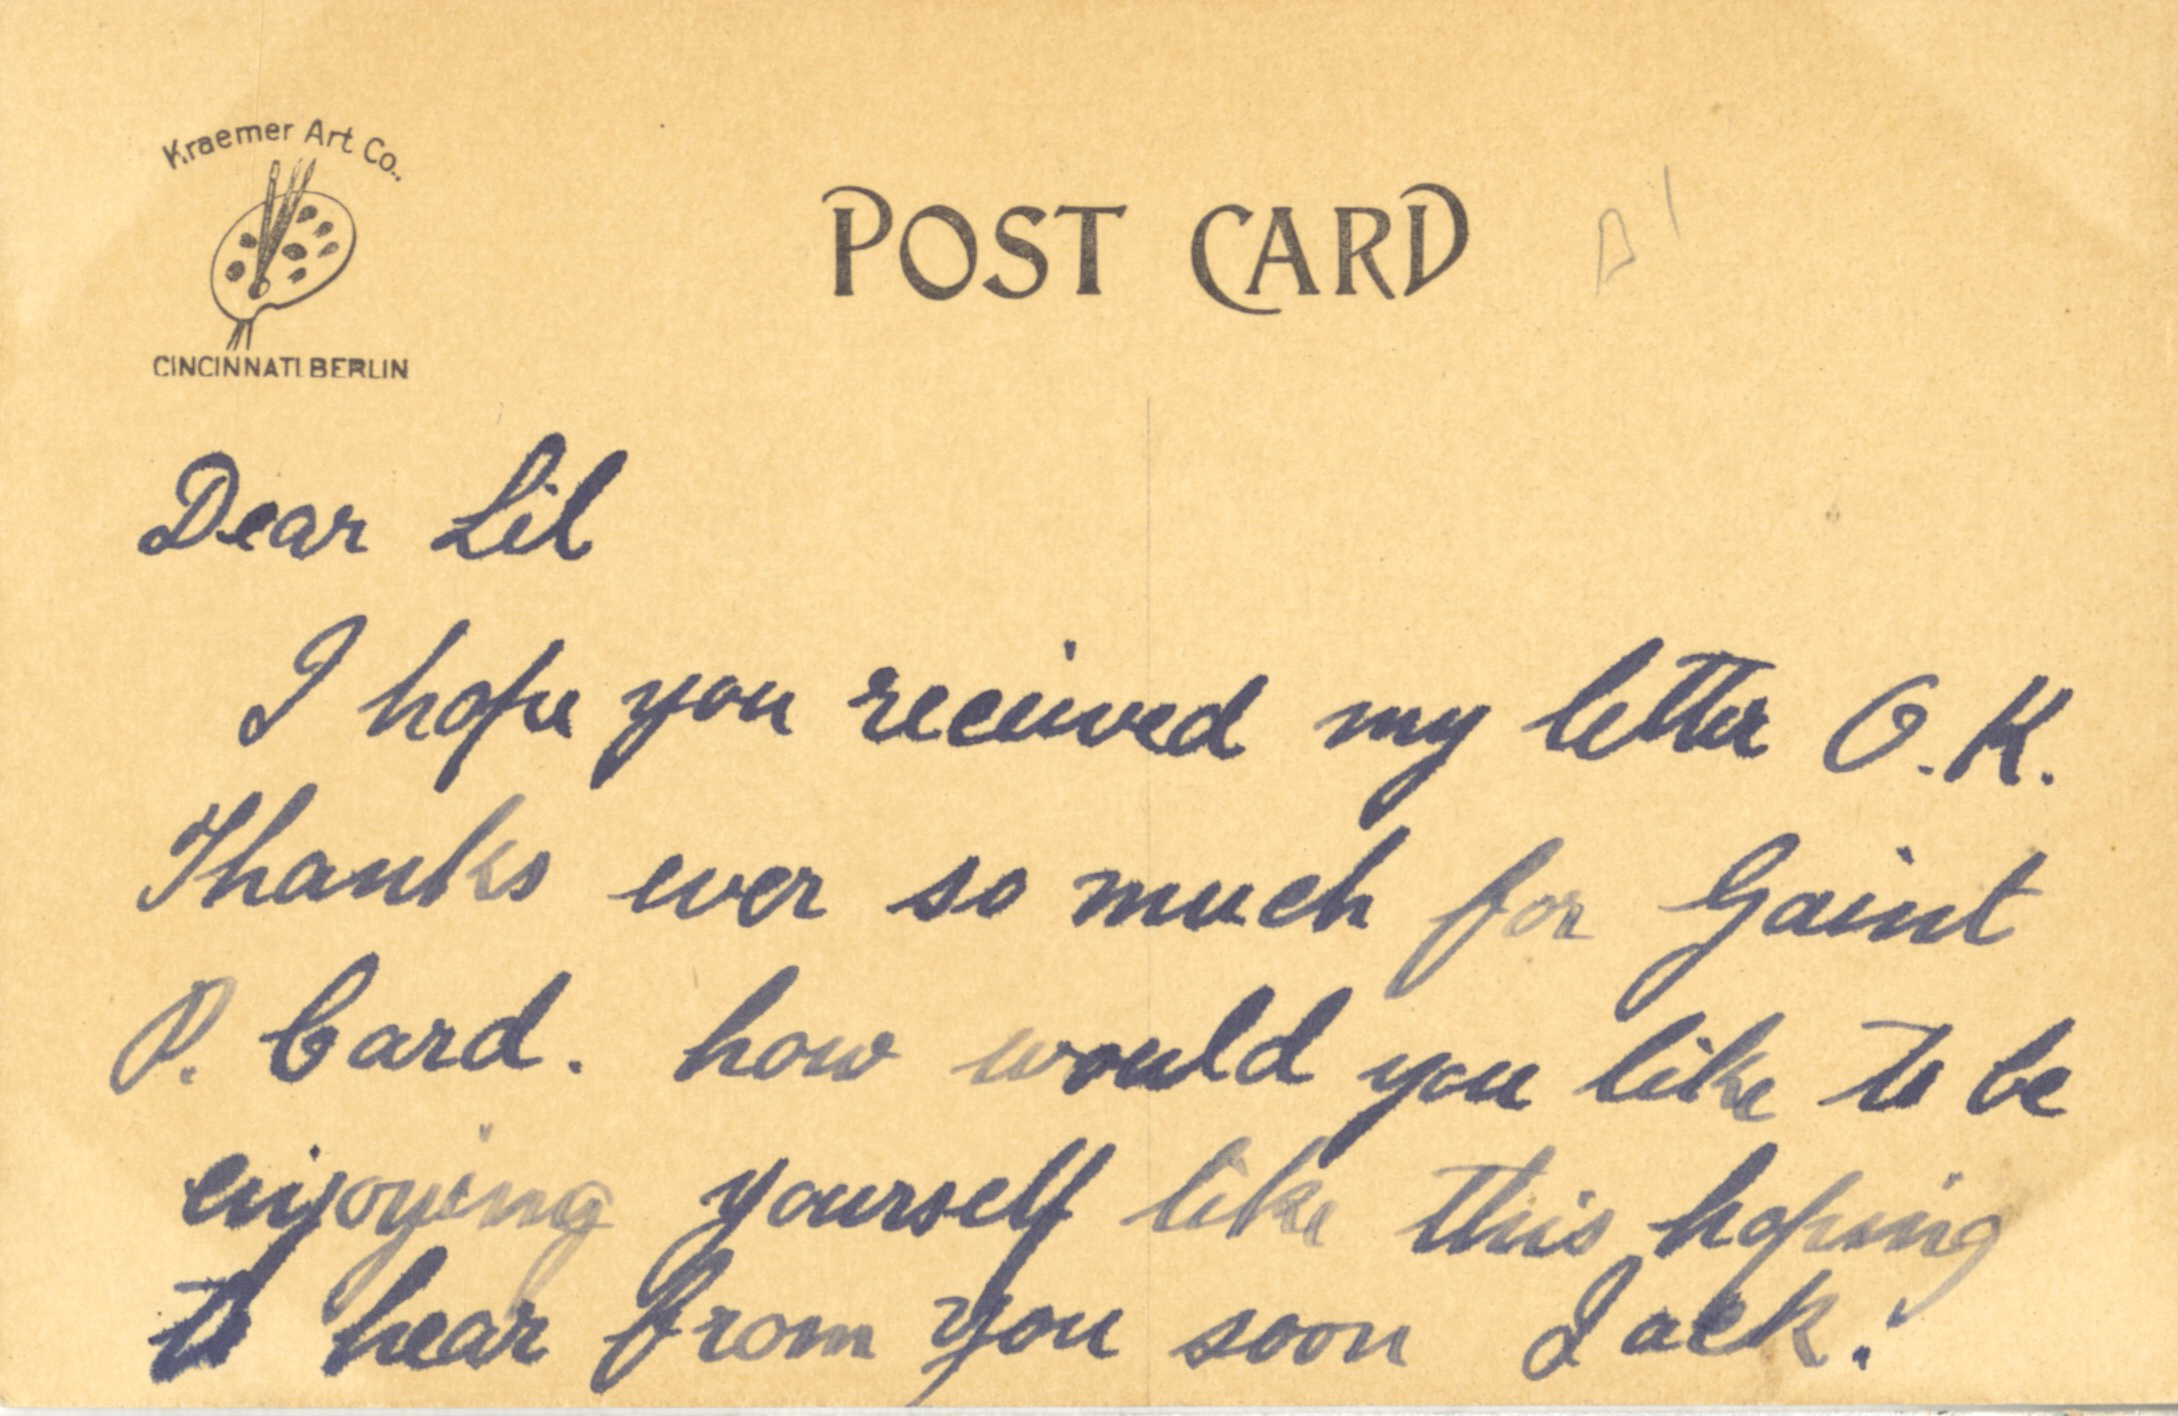 Kraemer Art Co..
POST CARD
CINCINNATI BERLIN
Dear Lil
I hope you received my letter O.K.
Thanks ever so much for Gaint
P. Card. how would you like to be
enjoying yourself like this hoping
to hear from you soon Jack.